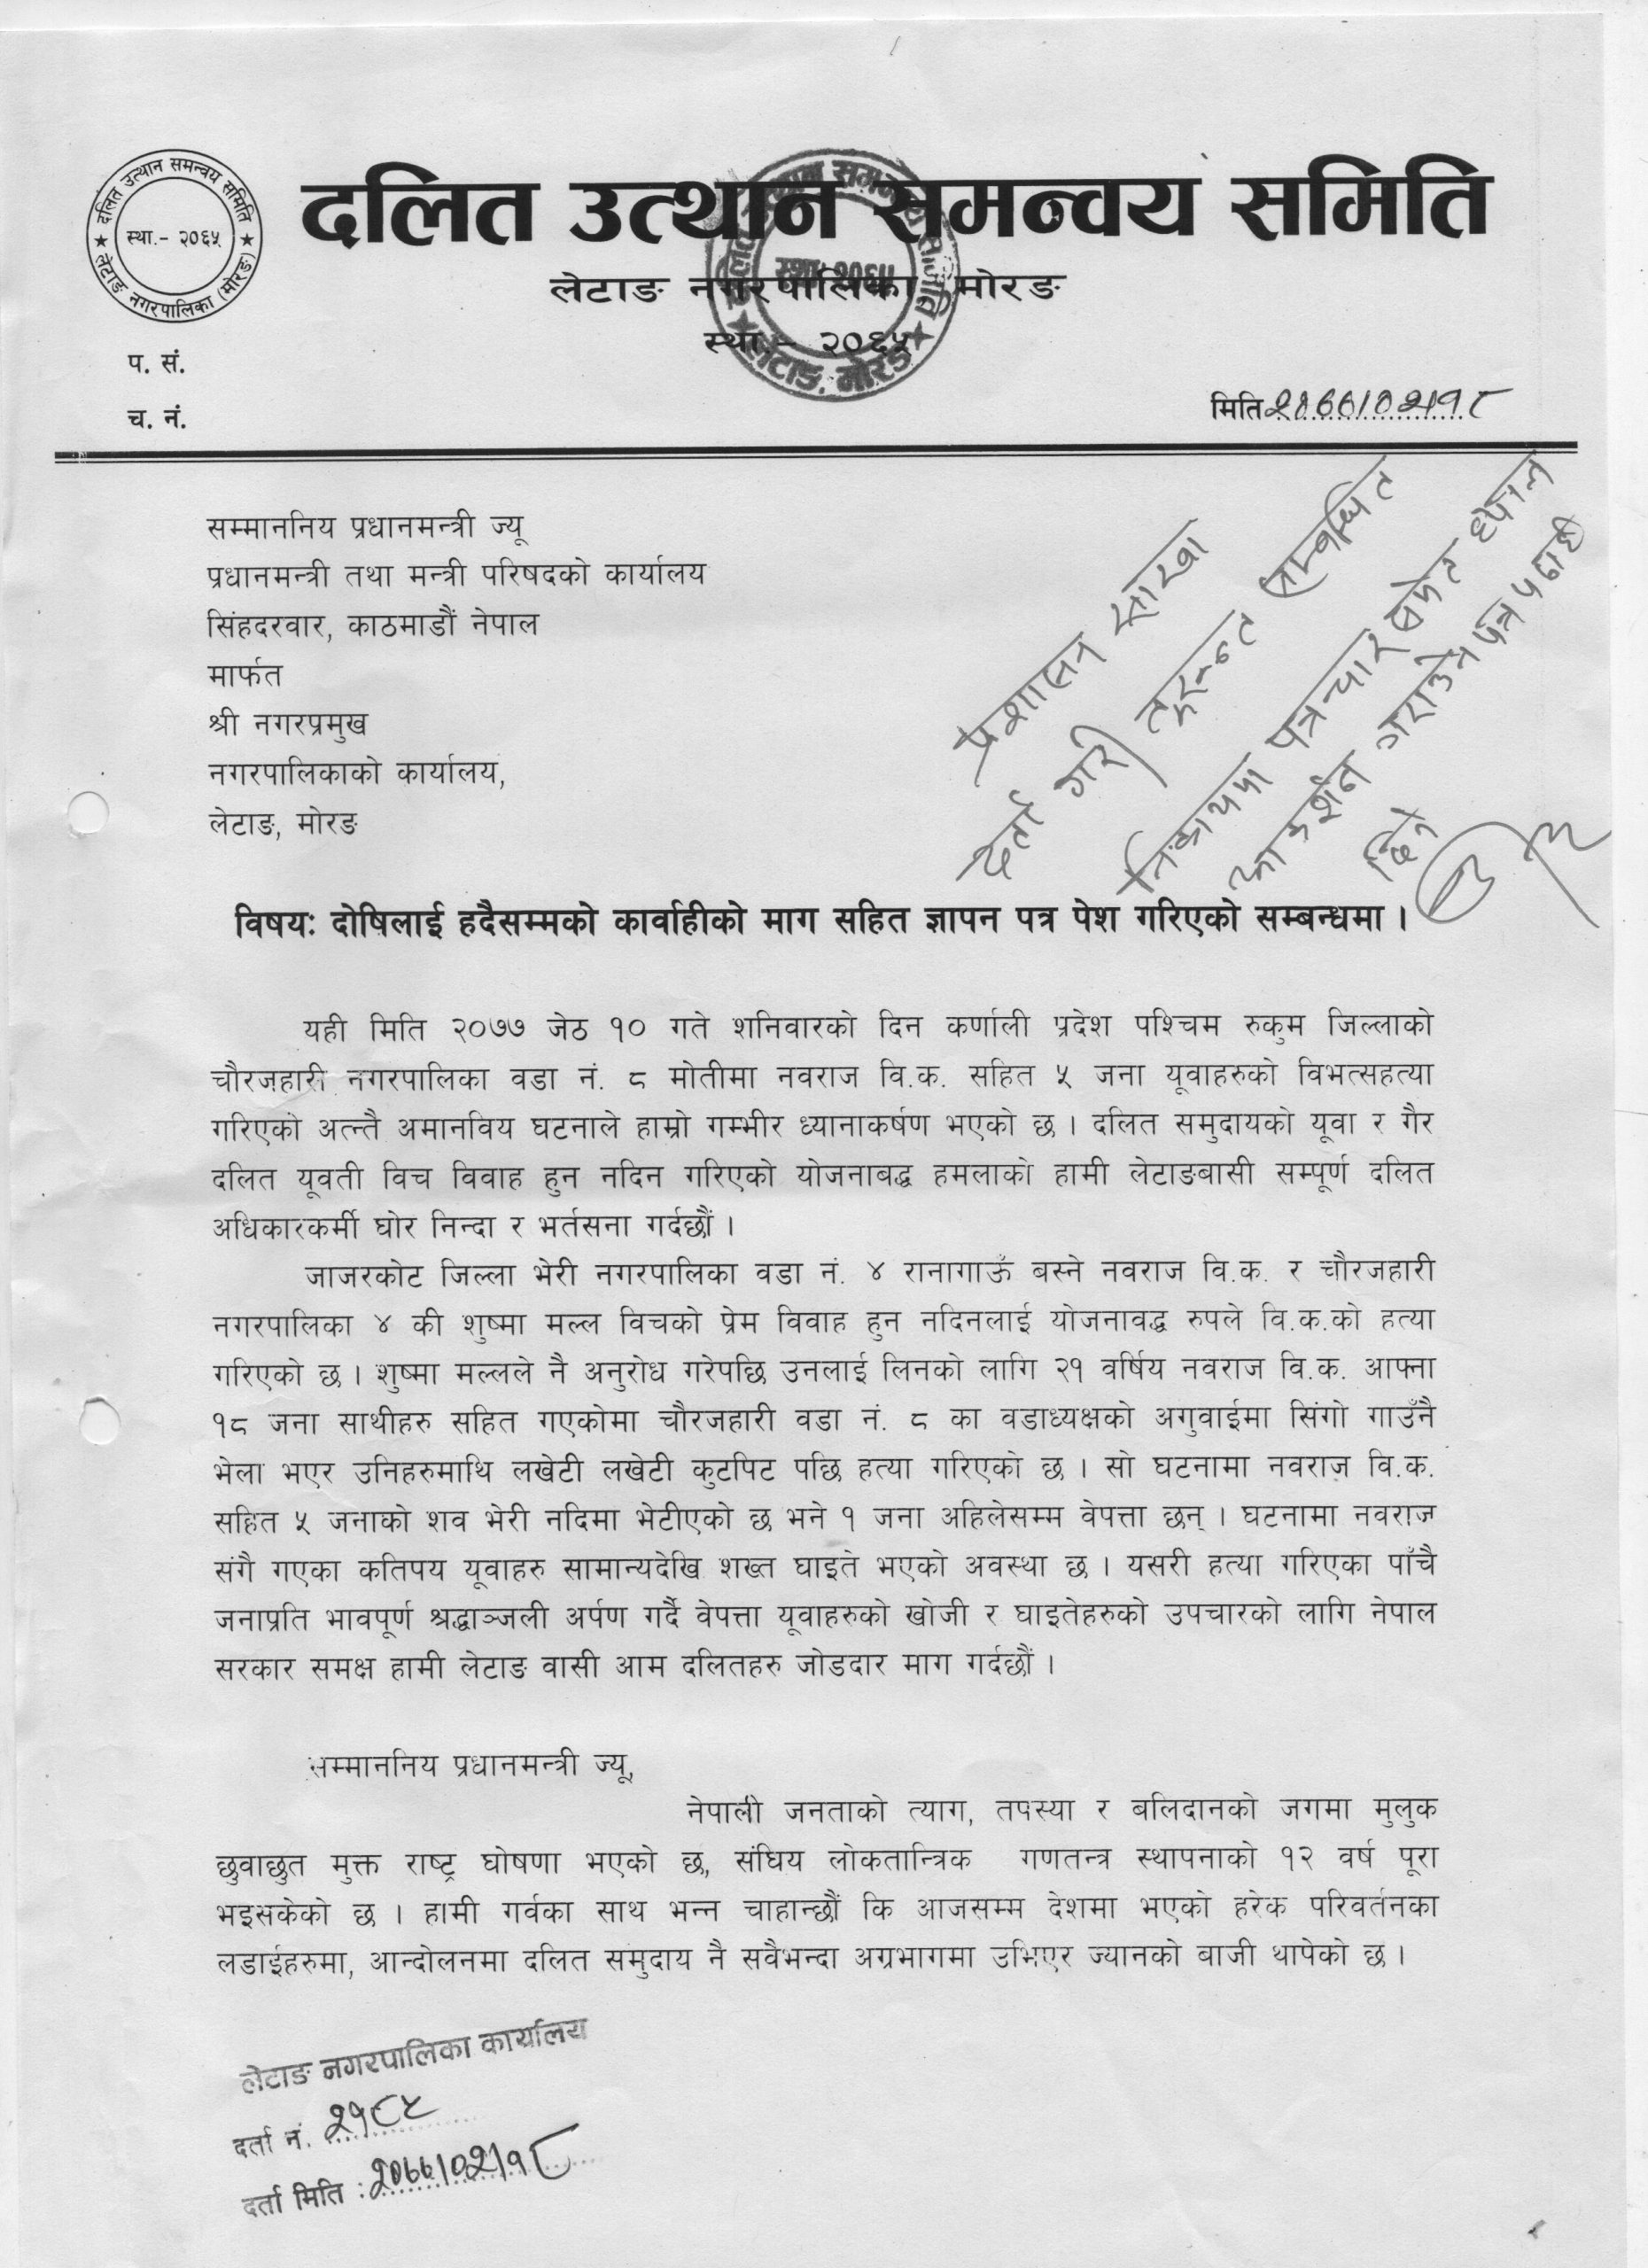 दलित उत्थान समन्वय समिति
लेटाङ नगरपालिका (मोरङ)
स्था.- २०६५
दलित उत्थान समन्वय समिति
लेटाङ नगरपालिका मोरङ
स्था.- २०६५
प. सं.
च. नं.
मिति २०७७/०२/१८
सम्माननिय प्रधानमन्त्री ज्यू
प्रधानमन्त्री तथा मन्त्री परिषदको कार्यालय
सिंहदरवार, काठमाडौं नेपाल
मार्फत
श्री नगरप्रमुख
नगरपालिकाको कार्यालय,
लेटाङ, मोरङ
प्रशासन शाखा
दर्ता गरी तुरुन्त सम्बन्धित
निकायमा पत्राचार समेत ध्यान
गराउने पत्र पठाई
दिने
विषयः दोषिलाई हदैसम्मको कार्वाहीको माग सहित ज्ञापन पत्र पेश गरिएको सम्बन्धमा ।
यही मिति २०७७ जेठ १० गते शनिवारको दिन कर्णाली प्रदेश पश्चिम रुकुम जिल्लाको
चौरजहारी नगरपालिका वडा नं. ८ मोतीमा नवराज वि.क. सहित ५ जना यूवाहरुको विभत्सहत्या
गरिएको अत्न्तै अमानविय घटनाले हाम्रो गम्भीर ध्यानाकर्षण भएको छ । दलित समुदायको यूवा र गैर
दलित यूवती विच विवाह हुन नदिन गरिएको योजनाबद्ध हमलाको हामी लेटाङबासी सम्पूर्ण दलित
अधिकारकर्मी घोर निन्दा र भर्तसना गर्दछौं ।
जाजरकोट जिल्ला भेरी नगरपालिका वडा नं. ४ रानागाऊँ बस्ने नवराज वि.क. र चौरजहारी
नगरपालिका ४ की शुष्मा मल्ल विचको प्रेम विवाह हुन नदिनलाई योजनावद्ध रुपले वि.क.को हत्या
गरिएको छ । शुष्मा मल्लले नै अनुरोध गरेपछि उनलाई लिनको लागि २१ वर्षिय नवराज वि.क. आफ्ना
१८ जना साथीहरु सहित गएकोमा चौरजहारी वडा नं. ८ का वडाध्यक्षको अगुवाईमा सिंगो गाउँनै
भेला भएर उनिहरुमाथि लखेटी लखेटी कुटपिट पछि हत्या गरिएको छ । सो घटनामा नवराज वि.क.
सहित ५ जनाको शव भेरी नदिमा भेटीएको छ भने १ जना अहिलेसम्म वेपत्ता छन् । घटनामा नवराज
संगै गएका कतिपय यूवाहरु सामान्यदेखि शख्त घाइते भएको अवस्था छ । यसरी हत्या गरिएका पाँचै
जनाप्रति भावपूर्ण श्रद्धाञ्जली अर्पण गर्दै वेपत्ता यूवाहरुको खोजी र घाइतेहरुको उपचारको लागि नेपाल
सरकार समक्ष हामी लेटाङ वासी आम दलितहरु जोडदार माग गर्दछौं ।
सम्माननिय प्रधानमन्त्री ज्यू,
नेपाली जनताको त्याग, तपस्या र बलिदानको जगमा मुलुक
छुवाछुत मुक्त राष्ट्र घोषणा भएको छ, संघिय लोकतान्त्रिक गणतन्त्र स्थापनाको १२ वर्ष पूरा
भइसकेको छ । हामी गर्वका साथ भन्न चाहान्छौं कि आजसम्म देशमा भएको हरेक परिवर्तनका
लडाईहरुमा, आन्दोलनमा दलित समुदाय नै सवैभन्दा अग्रभागमा उभिएर ज्यानको बाजी थापेको छ ।
लेटाङ नगरपालिका कार्यालय
दर्ता नं. २१८५
दर्ता मिति : २०७७/०२/१८